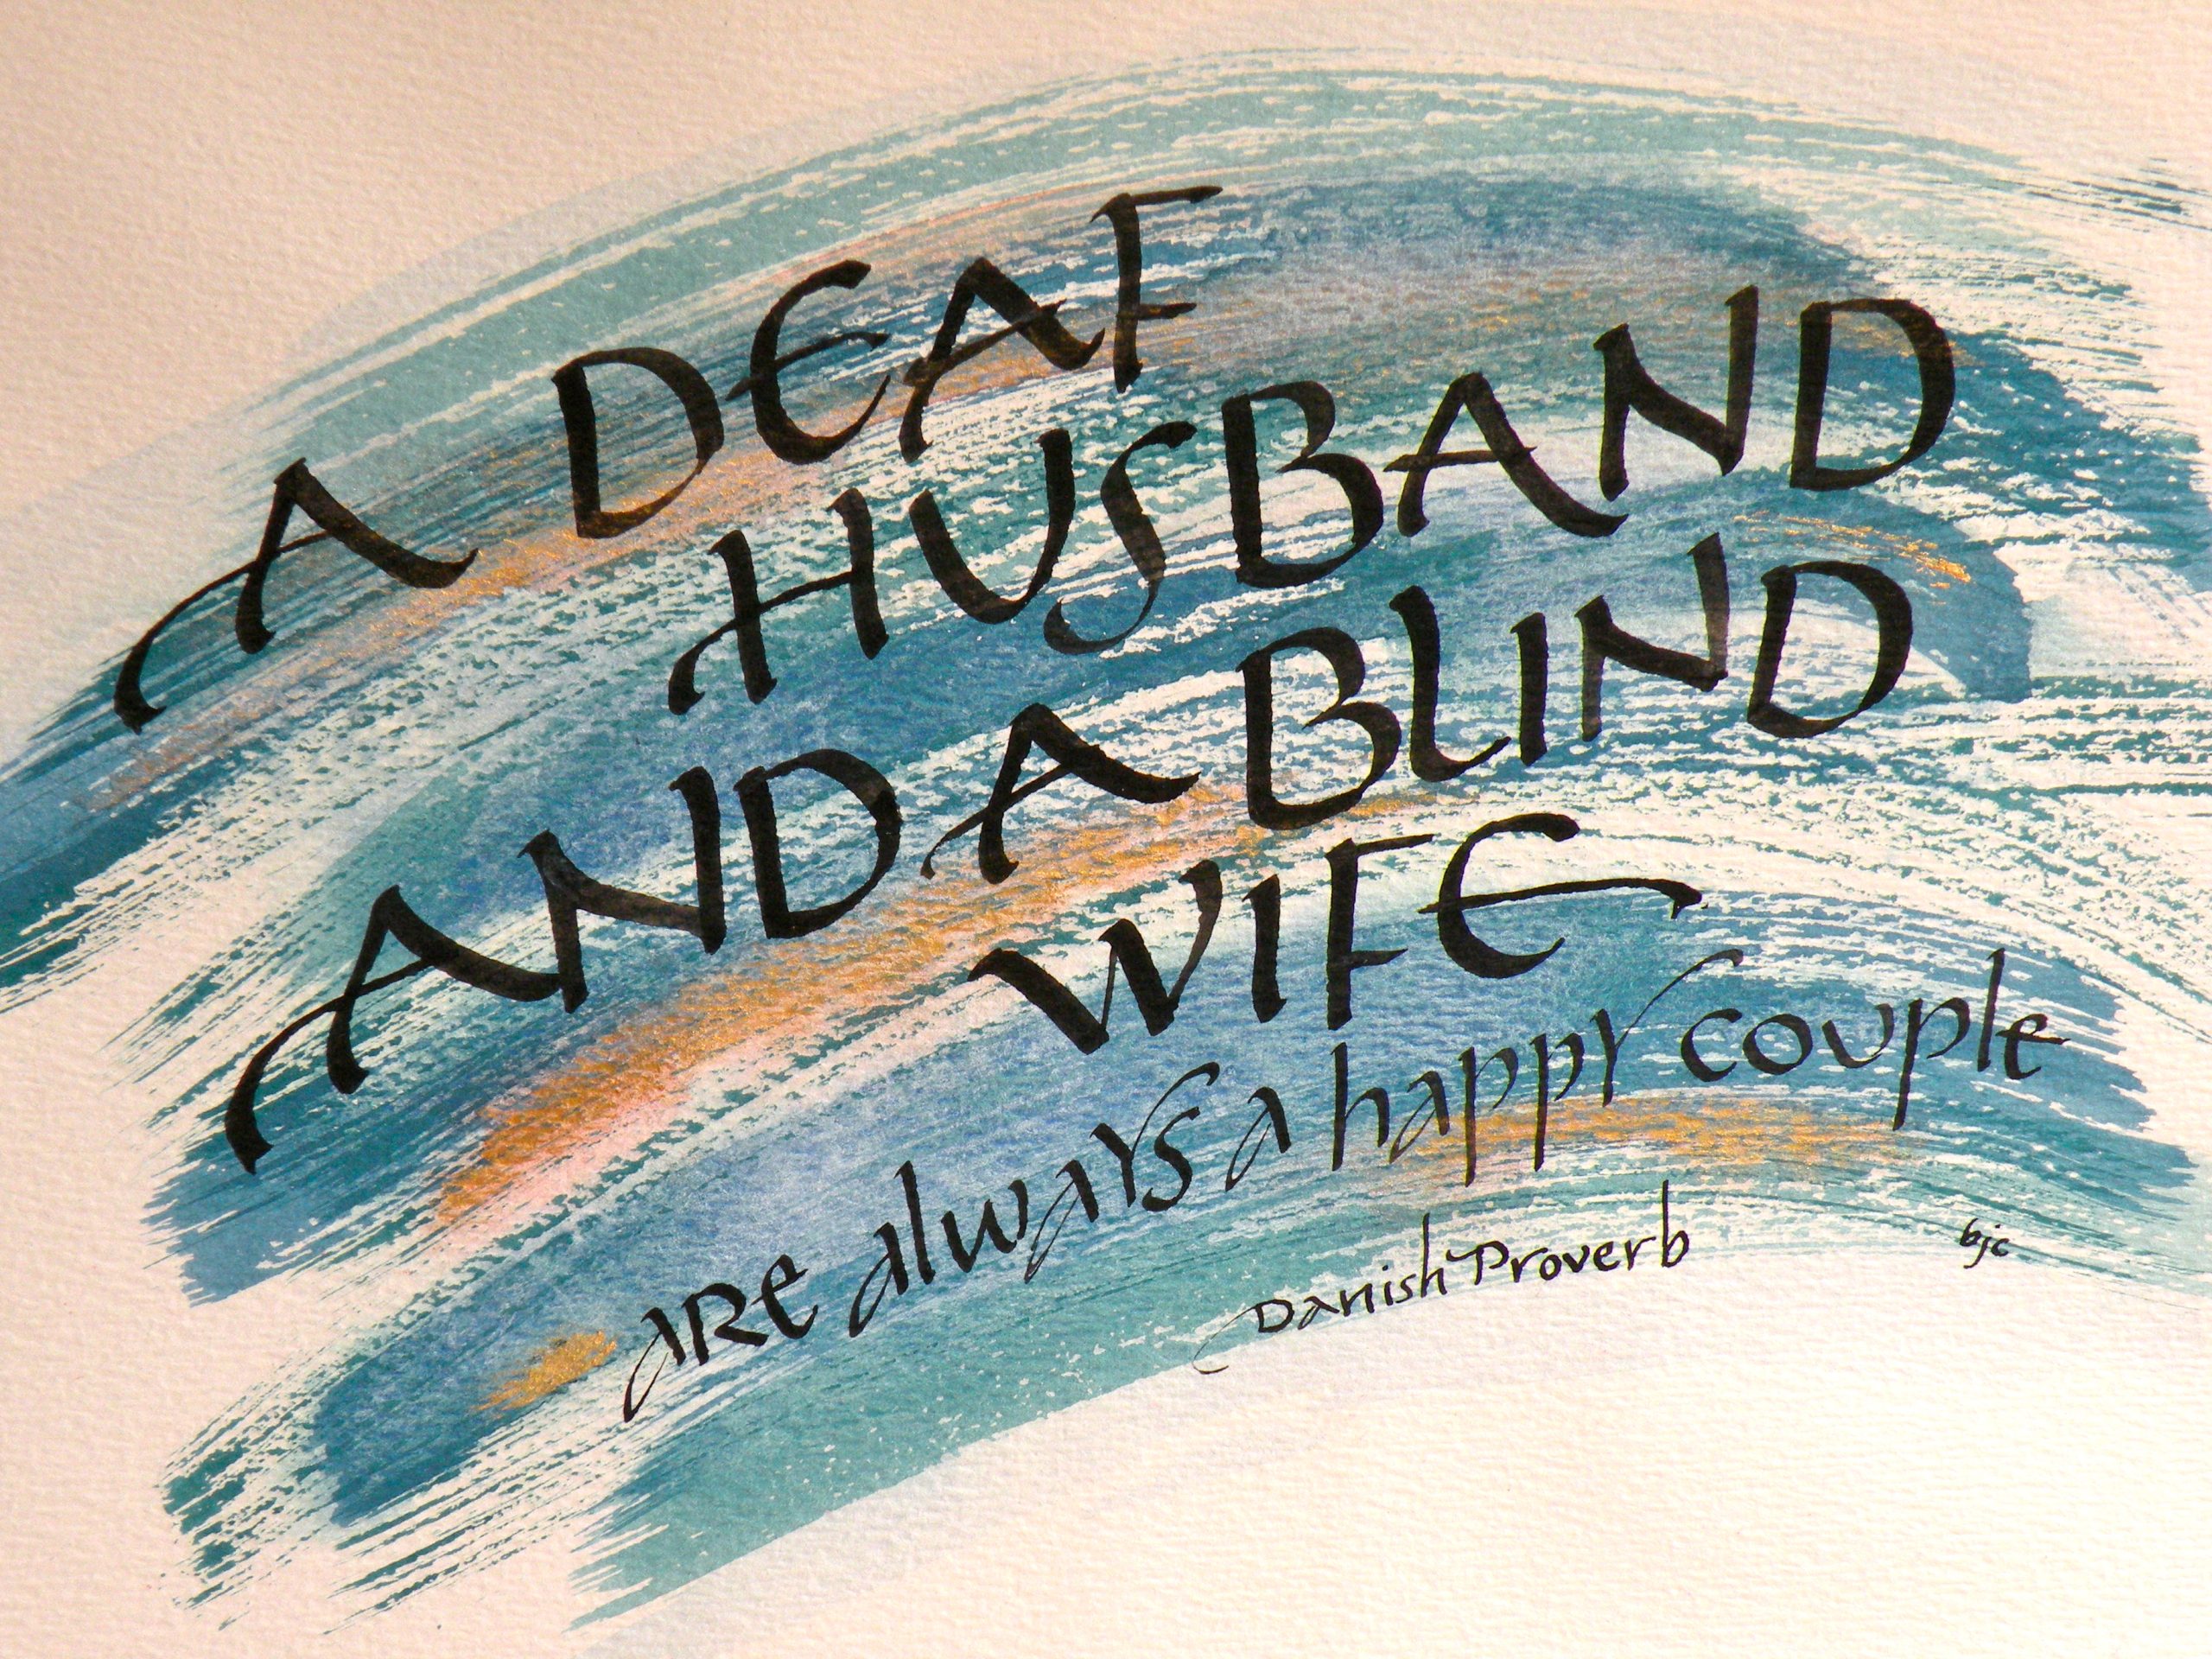 A DEAF
HUSBAND
AND A BLIND
WIFE
are always a happy couple
Danish Proverb
bjc